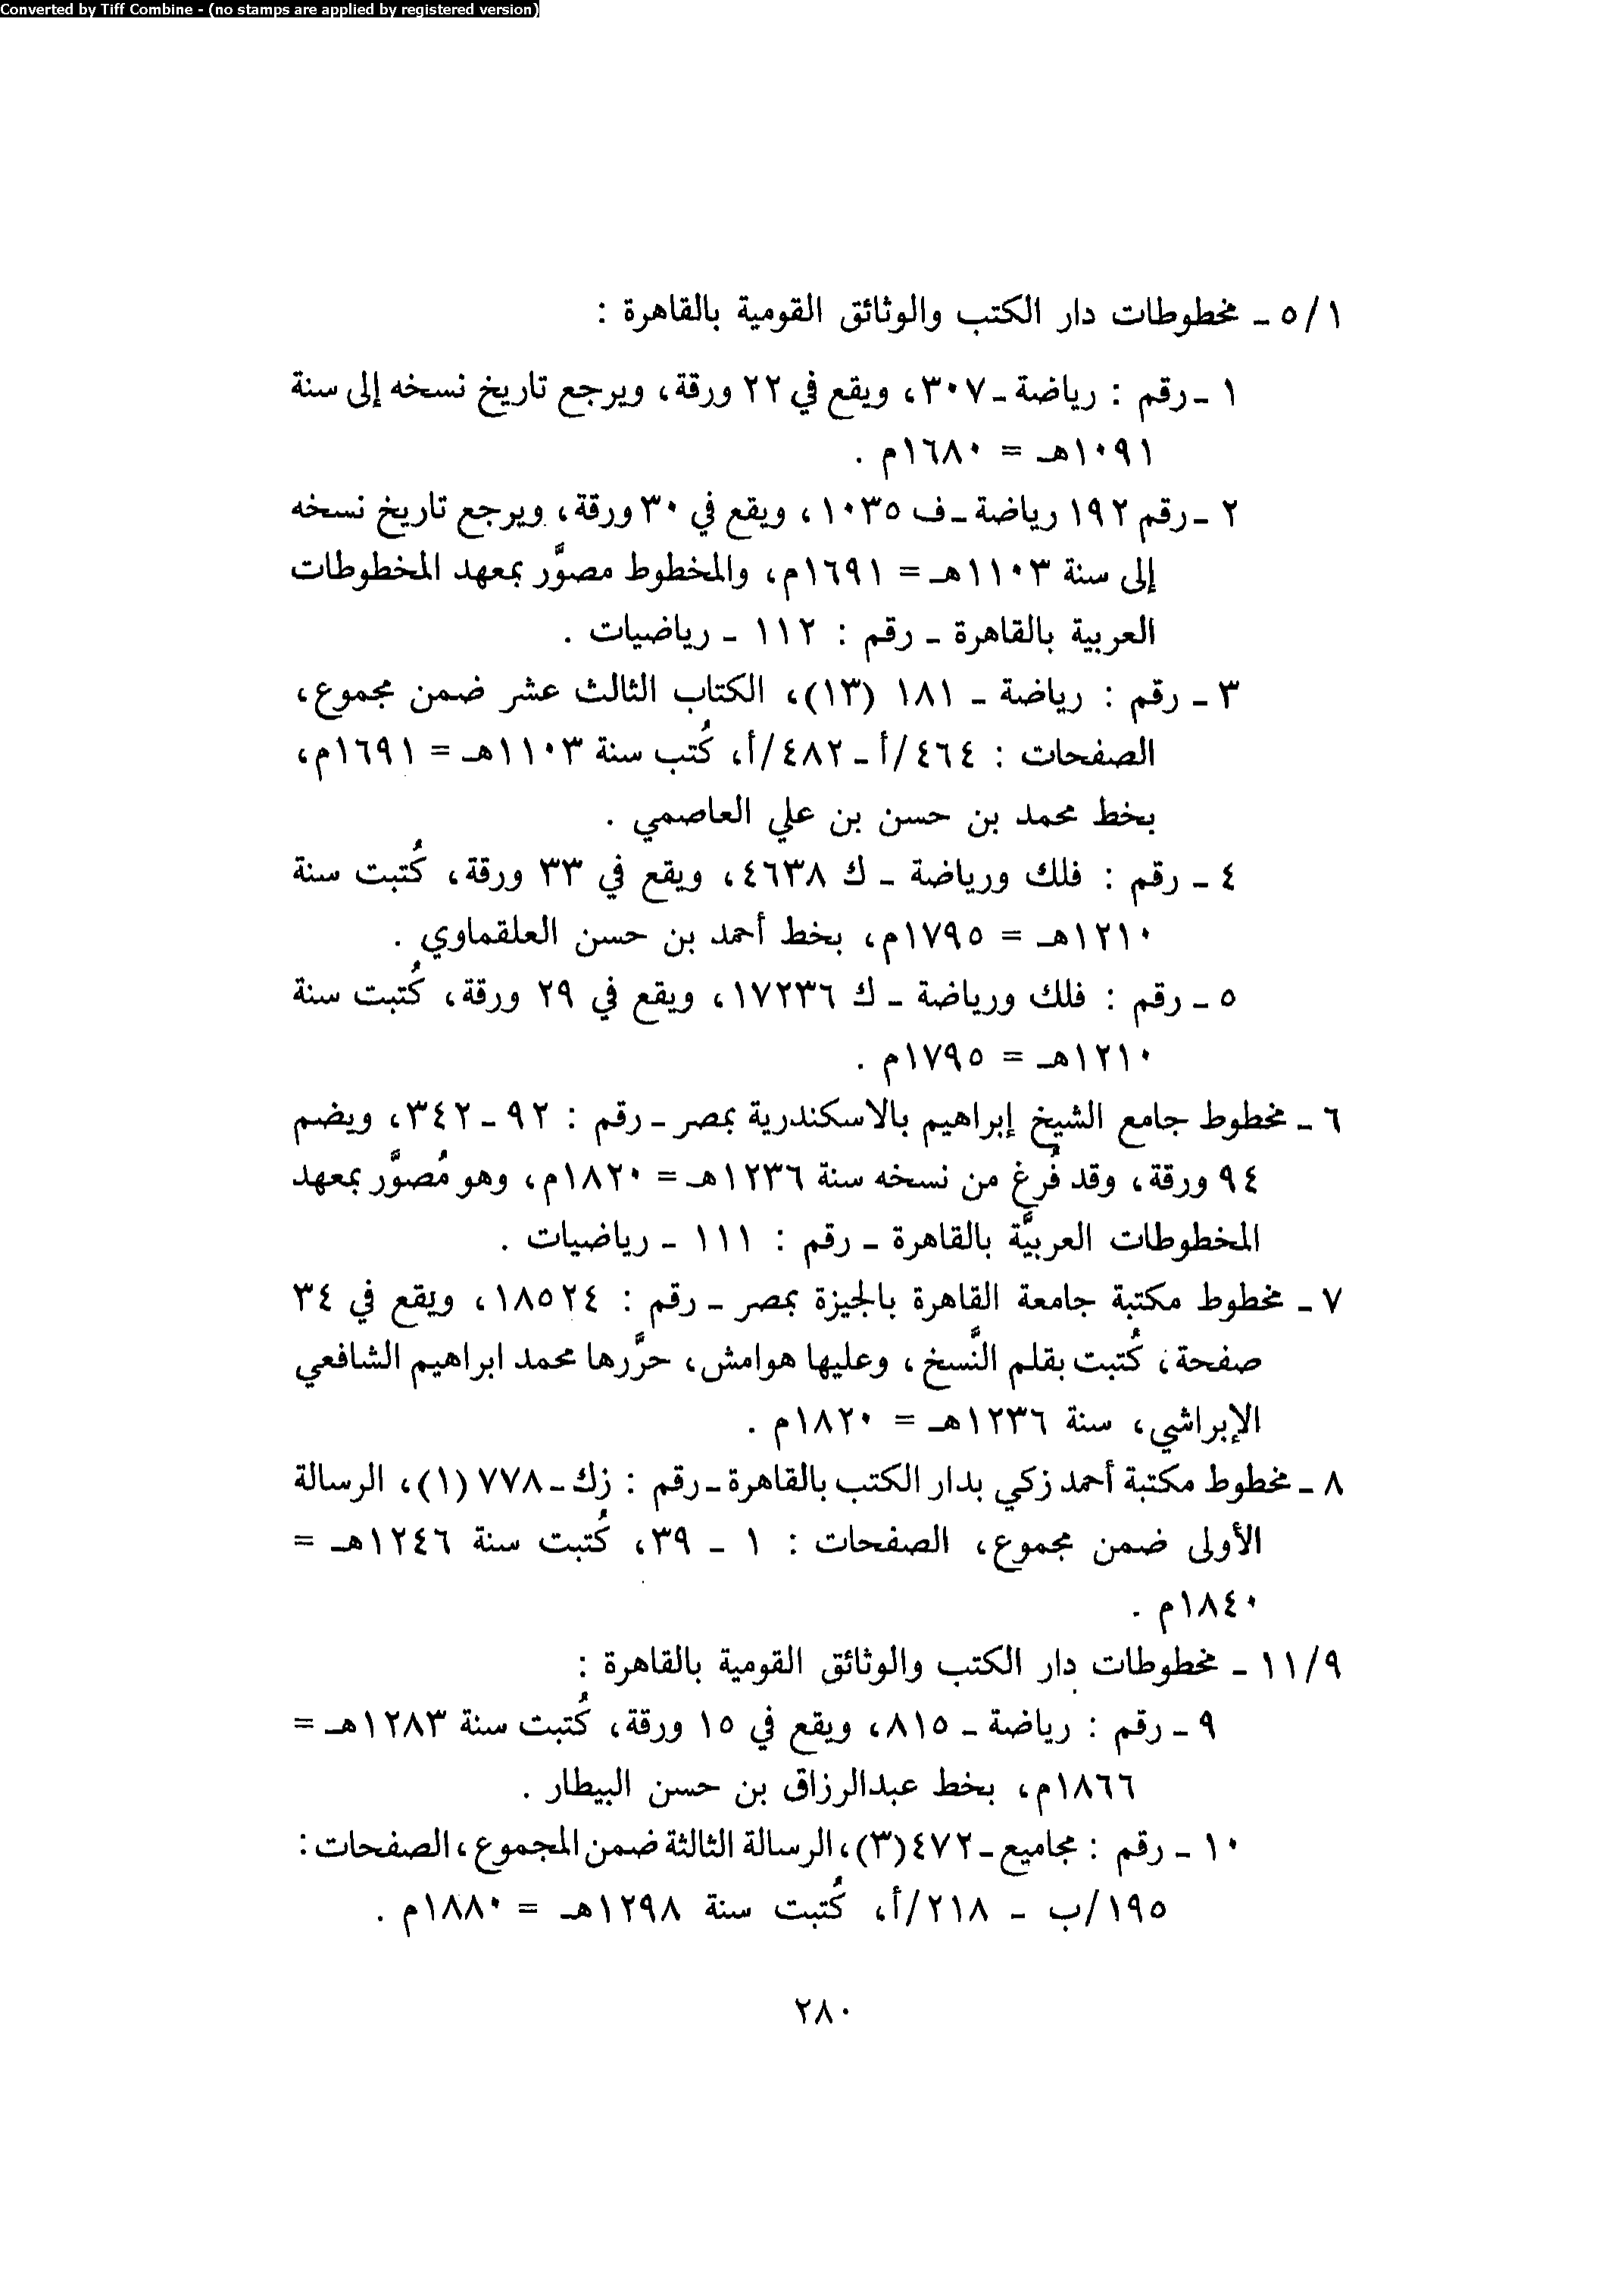 Converted by Tiff Combine - (no stamps are applied by registered version)
٥/١ ـ مخطوطات دار الكتب والوثائق القومية بالقاهرة :
١ ـ رقم : رياضة ـ ٣٠٧، ويقع في ٢٢ ورقة، ويرجع تاريخ نسخه إلى سنة
١٠٩١هـ = ١٦٨٠م .
٢ ـ رقم ١٩٢ رياضة ـ ف ١٠٣٥، ويقع في ٣٠ ورقة، ويرجع تاريخ نسخه
إلى سنة ١١٠٣هـ = ١٦٩١م، والمخطوط مصوَّر بمعهد المخطوطات
العربية بالقاهرة ـ رقم : ١١٢ ـ رياضيات .
٣ ـ رقم : رياضة ـ ١٨١ (١٣)، الكتاب الثالث عشر ضمن مجموع،
الصفحات : ٤٦٤/أ ـ ٤٨٢/أ، كُتب سنة ١١٠٣هـ = ١٦٩١م،
بخط محمد بن حسن بن علي العاصمي .
٤ ـ رقم : فلك ورياضة ـ ك ٤٦٣٨، ويقع في ٣٣ ورقة، كُتبت سنة
١٢١٠هـ = ١٧٩٥م، بخط أحمد بن حسن العلقماوي .
٥ ـ رقم : فلك ورياضة ـ ك ١٧٢٣٦، ويقع في ٢٩ ورقة، كُتبت سنة
١٢١٠هـ = ١٧٩٥م .
٦ ـ مخطوط جامع الشيخ إبراهيم بالاسكندرية بمصر ـ رقم : ٩٢ ـ ٣٤٢، ويضم
٩٤ ورقة، وقد فُرغ من نسخه سنة ١٢٣٦هـ = ١٨٢٠م، وهو مُصوَّر بمعهد
المخطوطات العربيَّة بالقاهرة ـ رقم : ١١١ ـ رياضيات .
٧ ـ مخطوط مكتبة جامعة القاهرة بالجيزة بمصر ـ رقم : ١٨٥٢٤، ويقع في ٣٤
صفحة، كُتبت بقلم النَّسخ، وعليها هوامش، حرَّرها محمد ابراهيم الشافعي
الإبراشي، سنة ١٢٣٦هـ = ١٨٢٠م .
٨ ـ مخطوط مكتبة أحمد زكي بدار الكتب بالقاهرة ـ رقم : زك ـ ٧٧٨ (١)، الرسالة
الأولى ضمن مجموع، الصفحات : ١ ـ ٣٩، كُتبت سنة ١٢٤٦هـ =
١٨٤٠م .
١١/٩ ـ مخطوطات دار الكتب والوثائق القومية بالقاهرة :
٩ ـ رقم : رياضة ـ ٨١٥، ويقع في ١٥ ورقة، كُتبت سنة ١٢٨٣هـ =
١٨٦٦م، بخط عبدالرزاق بن حسن البيطار .
١٠ ـ رقم : مجاميع ـ ٤٧٢(٣)، الرسالة الثالثة ضمن المجموع، الصفحات :
١٩٥/ب ـ ٢١٨/أ، كُتبت سنة ١٢٩٨هـ = ١٨٨٠م .
٢٨٠